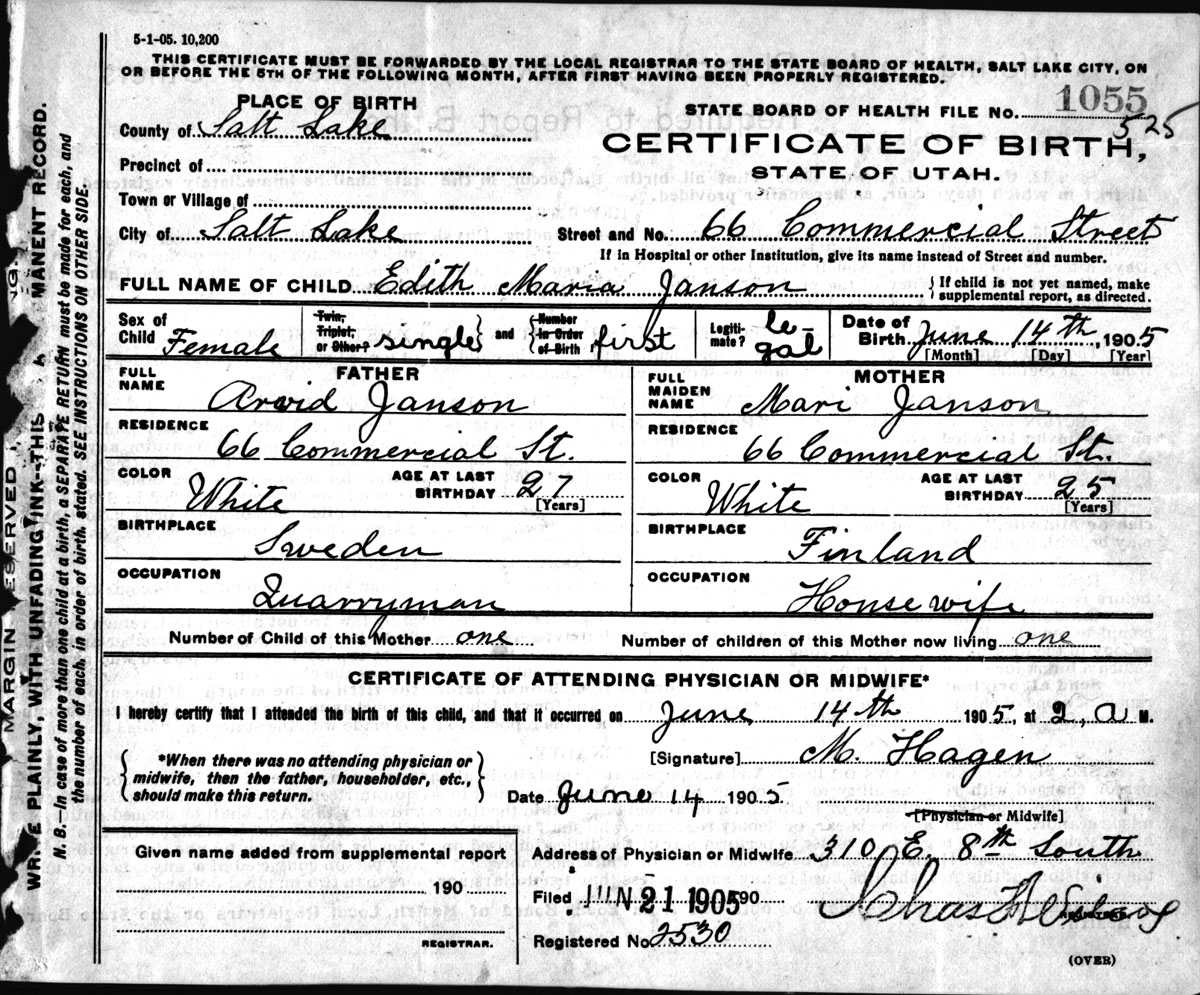 5-1-05. 10,200
THIS CERTIFICATE MUST BE FORWARDED BY THE LOCAL REGISTRAR TO THE STATE BOARD OF HEALTH, SALT LAKE CITY, ON
OR BEFORE THE 5TH OF THE FOLLOWING MONTH, AFTER FIRST HAVING BEEN PROPERLY REGISTERED.
PLACE OF BIRTH
County of Salt Lake
Precinct of
Town or Village of
City of Salt Lake
STATE BOARD OF HEALTH FILE NO. 1055
525
CERTIFICATE OF BIRTH,
STATE OF UTAH.
Street and No. 66 Commercial Street
If in Hospital or other Institution, give its name instead of Street and number.
FULL NAME OF CHILD Edith Maria Janson
If child is not yet named, make
supplemental report, as directed.
Sex of
Child Female
Twin,
Triplet,
or Other? single and
Number
in Order
of Birth first
Legiti-
mate? le-
gal
Date of
Birth June 14th, 1905
[Month] [Day] [Year]
FATHER
FULL
NAME
Arvid Janson
RESIDENCE
66 Commercial St.
COLOR
White
AGE AT LAST
BIRTHDAY 27
[Years]
BIRTHPLACE
Sweden
OCCUPATION
Quarryman
MOTHER
FULL
MAIDEN
NAME
Mari Janson
RESIDENCE
66 Commercial St.
COLOR
White
AGE AT LAST
BIRTHDAY 25
[Years]
BIRTHPLACE
Finland
OCCUPATION
House wife
Number of Child of this Mother one
Number of children of this Mother now living one
CERTIFICATE OF ATTENDING PHYSICIAN OR MIDWIFE*
I hereby certify that I attended the birth of this child, and that it occurred on June 14th 1905, at 2, a M.
*When there was no attending physician or
midwife, then the father, householder, etc.,
should make this return.
[Signature] M. Hagen
Date June 14 1905.
[Physician or Midwife]
Given name added from supplemental report
190
REGISTRAR.
Address of Physician or Midwife 310 E. 8th South
Filed JUN 21 1905 190
Chas
REGISTRAR
Registered No 2530
(OVER)
MARGIN RESERVED
WRITE PLAINLY, WITH UNFADING INK--THIS A MANENT RECORD.
N. B.--In case of more than one child at a birth, a SEPARATE RETURN must be made for each, and
the number of each, in order of birth, stated. SEE INSTRUCTIONS ON OTHER SIDE.